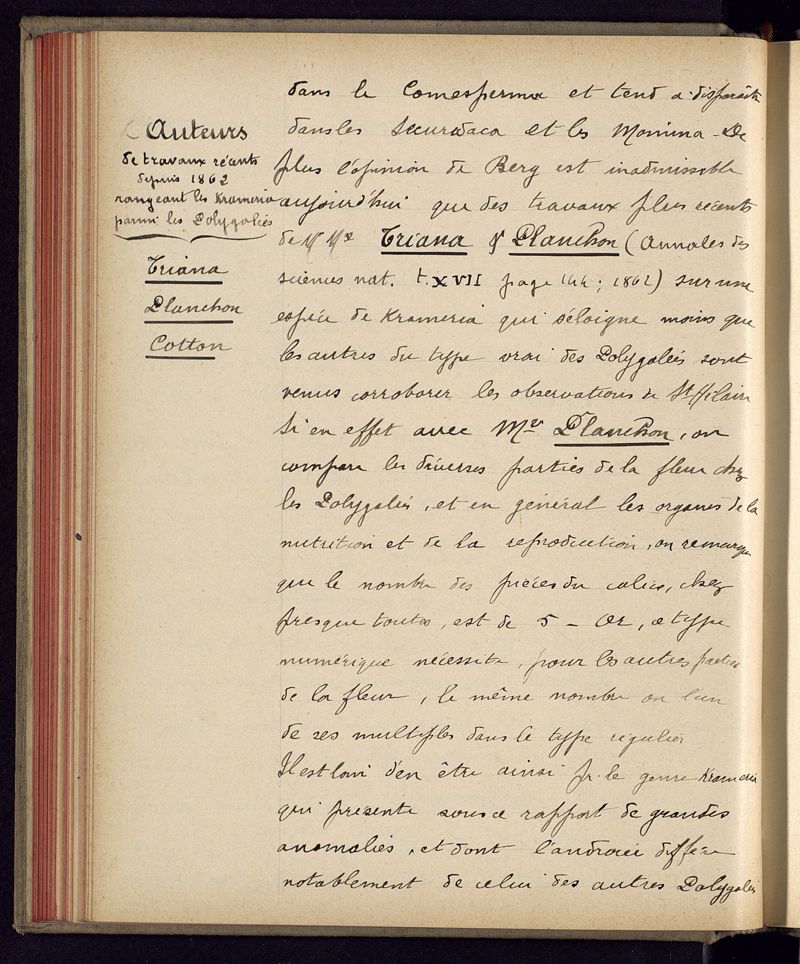 Auteurs
de travaux récents
depuis 1862
rangeant les Krameria
parmi les Polygalées
Triana
Planchon
Cotton
dans le Comesperma et tend a disparaitre
dans les Securidaca et les Monnina - De
plus l'opinion de Berg est inadmissible
aujourd'hui que des travaux plus récents
de MMrs Triana & Planchon (Annales des
sciences nat. t. XVII page 144 ; 1862) sur une
espèce de Krameria qui s'éloigne moins que
les autres du type vrai des Polygalées sont
venus corroborer les observations de St Hilaire
Si en effet avec Mr Planchon, on
compare les diverses parties de la fleur chez
les Polygalées, et en général les organes de la
nutrition et de la reproduction, on remarque
que le nombre des pièces du calice, chez
presque toutes, est de 5 - Or, ce type
numérique nécessite, pour les autres parties
de la fleur, le même nombre ou l'un
de ses multiples dans le type régulier
Il est loin d'en être ainsi pr. le genre Krameria
qui présente sous ce rapport de grandes
anomalies, et dont l'androcée diffère
notablement de celui des autres Polygalées